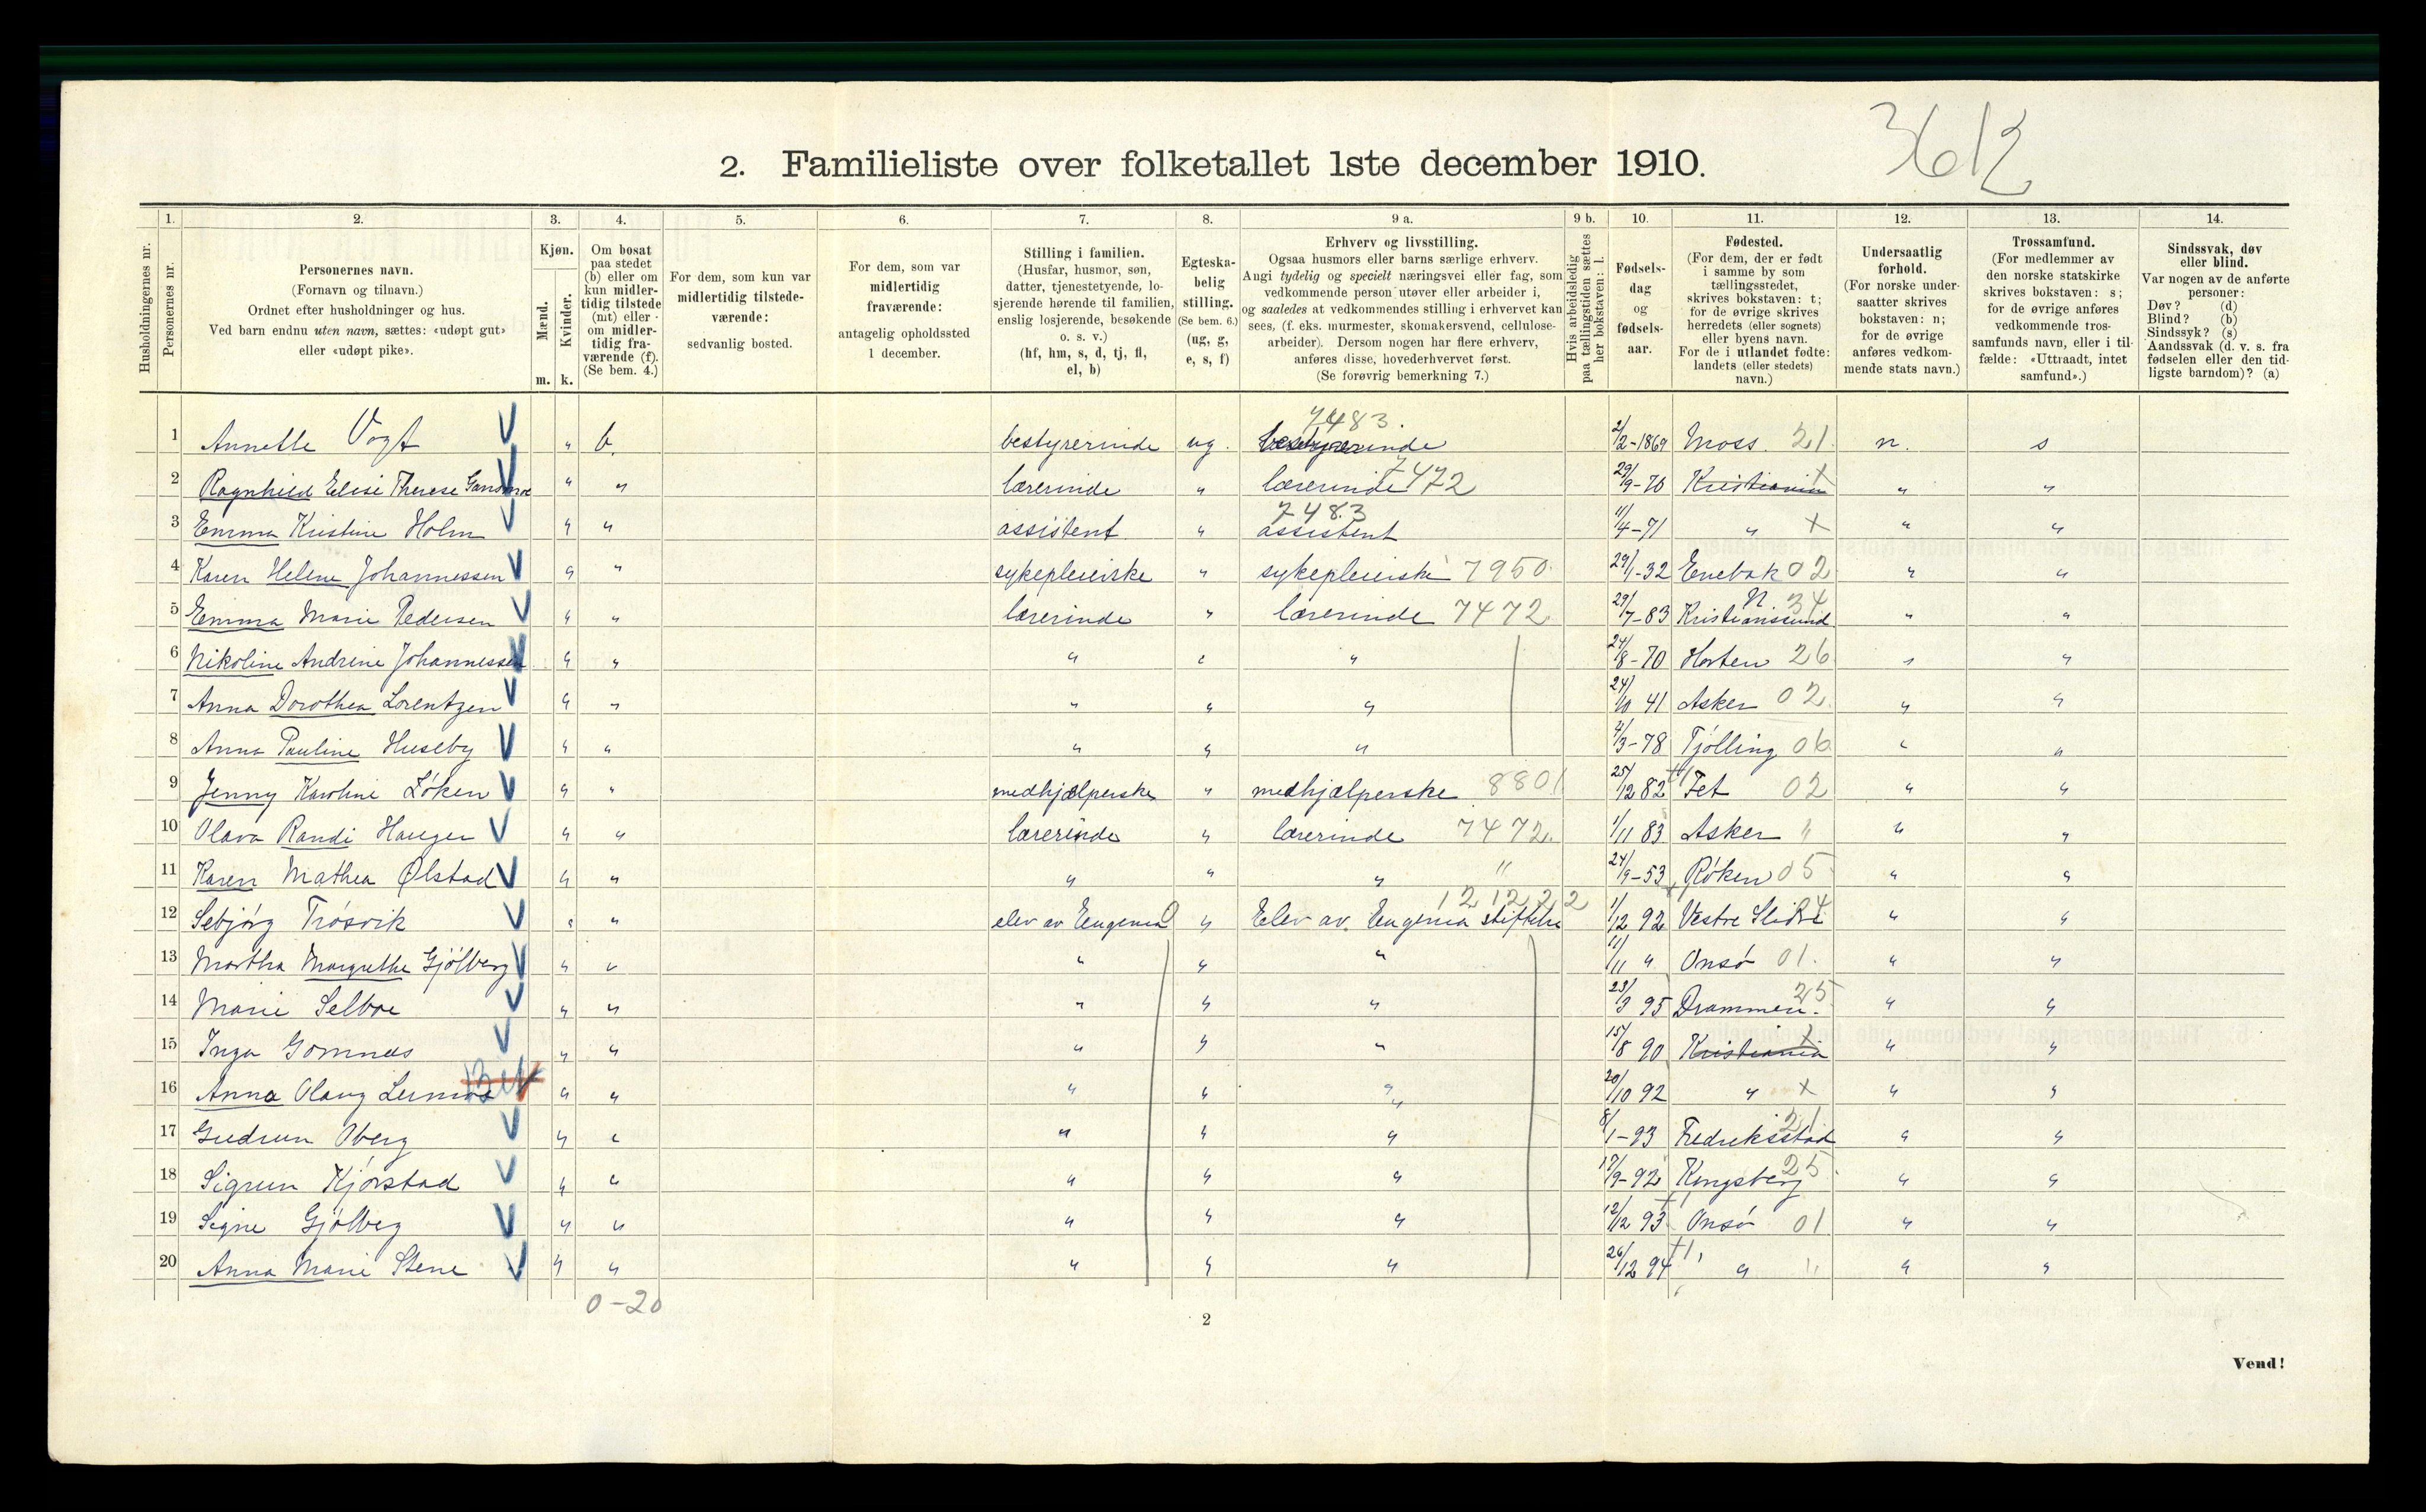 3612
2. Familieliste over folketallet 1ste december 1910.
1. 2. 3. 4. 5. 6. 7. 8. 9 a. 9 b. 10. 11. 12. 13. 14.
Husholdningernes nr.
Personernes nr.
Personernes navn.
(Fornavn og tilnavn.)
Ordnet efter husholdninger og hus.
Ved barn endnu uten navn, sættes: «udøpt gut»
eller «udøpt pike».
Kjøn.
Mænd.
Kvinder.
m. k.
Om bosat
paa stedet
(b) eller om
kun midler-
tidig tilstede
(mt) eller
om midler-
tidig fra-
værende (f).
(Se bem. 4.)
For dem, som kun var
midlertidig tilstede-
værende:
sedvanlig bosted.
For dem, som var
midlertidig
fraværende:
antagelig opholdssted
1 december.
Stilling i familien.
(Husfar, husmor, søn,
datter, tjenestetyende, lo-
sjerende hørende til familien,
enslig losjerende, besøkende
o. s. v.)
(hf, hm, s, d, tj, fl,
el, b)
Egteska-
belig
stilling.
(Se bem. 6.)
(ug, g,
e, s, f)
Erhverv og livsstilling.
Ogsaa husmors eller barns særlige erhverv.
Angi tydelig og specielt næringsvei eller fag, som
vedkommende person utøver eller arbeider i,
og saaledes at vedkommendes stilling i erhvervet kan
sees, (f. eks. murmester, skomakersvend, cellulose-
arbeider). Dersom nogen har flere erhverv,
anføres disse, hovederhvervet først.
(Se forøvrig bemerkning 7.)
Hvis arbeidsledig
paa tællingstiden sættes
her bokstaven: l.
Fødsels-
dag
og
fødsels-
aar.
Fødested.
(For dem, der er født
i samme by som
tællingsstedet,
skrives bokstaven: t;
for de øvrige skrives
herredets (eller sognets)
eller byens navn.
For de i utlandet fødte:
landets (eller stedets)
navn.)
Undersaatlig
forhold.
(For norske under-
saatter skrives
bokstaven: n;
for de øvrige
anføres vedkom-
mende stats navn.)
Trossamfund.
(For medlemmer av
den norske statskirke
skrives bokstaven: s;
for de øvrige anføres
vedkommende tros-
samfunds navn, eller i til-
fælde: «Uttraadt, intet
samfund».)
Sindssvak, døv
eller blind.
Var nogen av de anførte
personer:
Døv? (d)
Blind? (b)
Sindssyk? (s)
Aandssvak (d. v. s. fra
fødselen eller den tid-
ligste barndom)? (a)
7483.
1 Annette Vogt " b. bestyrerinde ug. bestyrerinde 2/2-1869 Moss 21 n. s
2 Ragnhild Elise Therese " " lærerinde " lærerinde 7472 29/9-76 Kristiania x " "
7483
3 Emma Kristine Holm " " assistent " assistent 11/4-71 " x " "
4 Karen Helene Johannessen " " sykepleierske " sykepleierske 7950 29/1-32 Enebak 02 " "
N 34
5 Emma Marie Pedersen " " lærerinde " lærerinde 7472 29/7-83 Kristianssund " "
6 Nikoline Andrine Johannessen " " " " " 24/8-70 Horten 26 " "
7 Anna Dorothea Lorentzen " " " " " 24/10 41 Asker 02 " "
8 Anna Pauline Huseby " " " " " 4/3-78 Tjølling 06 " "
9 Jenny Karoline Løken " " medhjælperske " medhjælperske 8801 25/12 82 Fet 02 " "
10 Olava Randi Haugen " " lærerinde " lærerinde 7472. 1/11 83 Asker " " "
11 Karen Mathea Ølstad " " " " " " 24/9-53 Røken 05 " "
12 12,22
12 Sebjørg Trøsvik " " elev av Eugenia " Elev av Eugenia stiftelse 1/12 92 Vestre Slidre " "
13 Martha Margrethe Gjølberg " " " " " 11/11 " Onsø 01. " "
14 Marie Selboe " " " " " 23/3 95 Drammen. 25 " "
15 Inga Gomnæs " " " " " 15/8 90 Kristiania x " "
16 Anna Olaug " " " " " 20/10 92 " x " "
17 Gudrun Oberg " " " " " 8/1-93 Fredriksstad 21 " "
18 Sigrun Kjørstad " " " " " 17/9-92 Kongsberg 25 " "
19 Signe Gjølberg " " " " " 12/12 93 Onsø 01 " "
20 Anna Marie Stene " " " " " 26/12 94 " " " "
0-20
2
Vend!